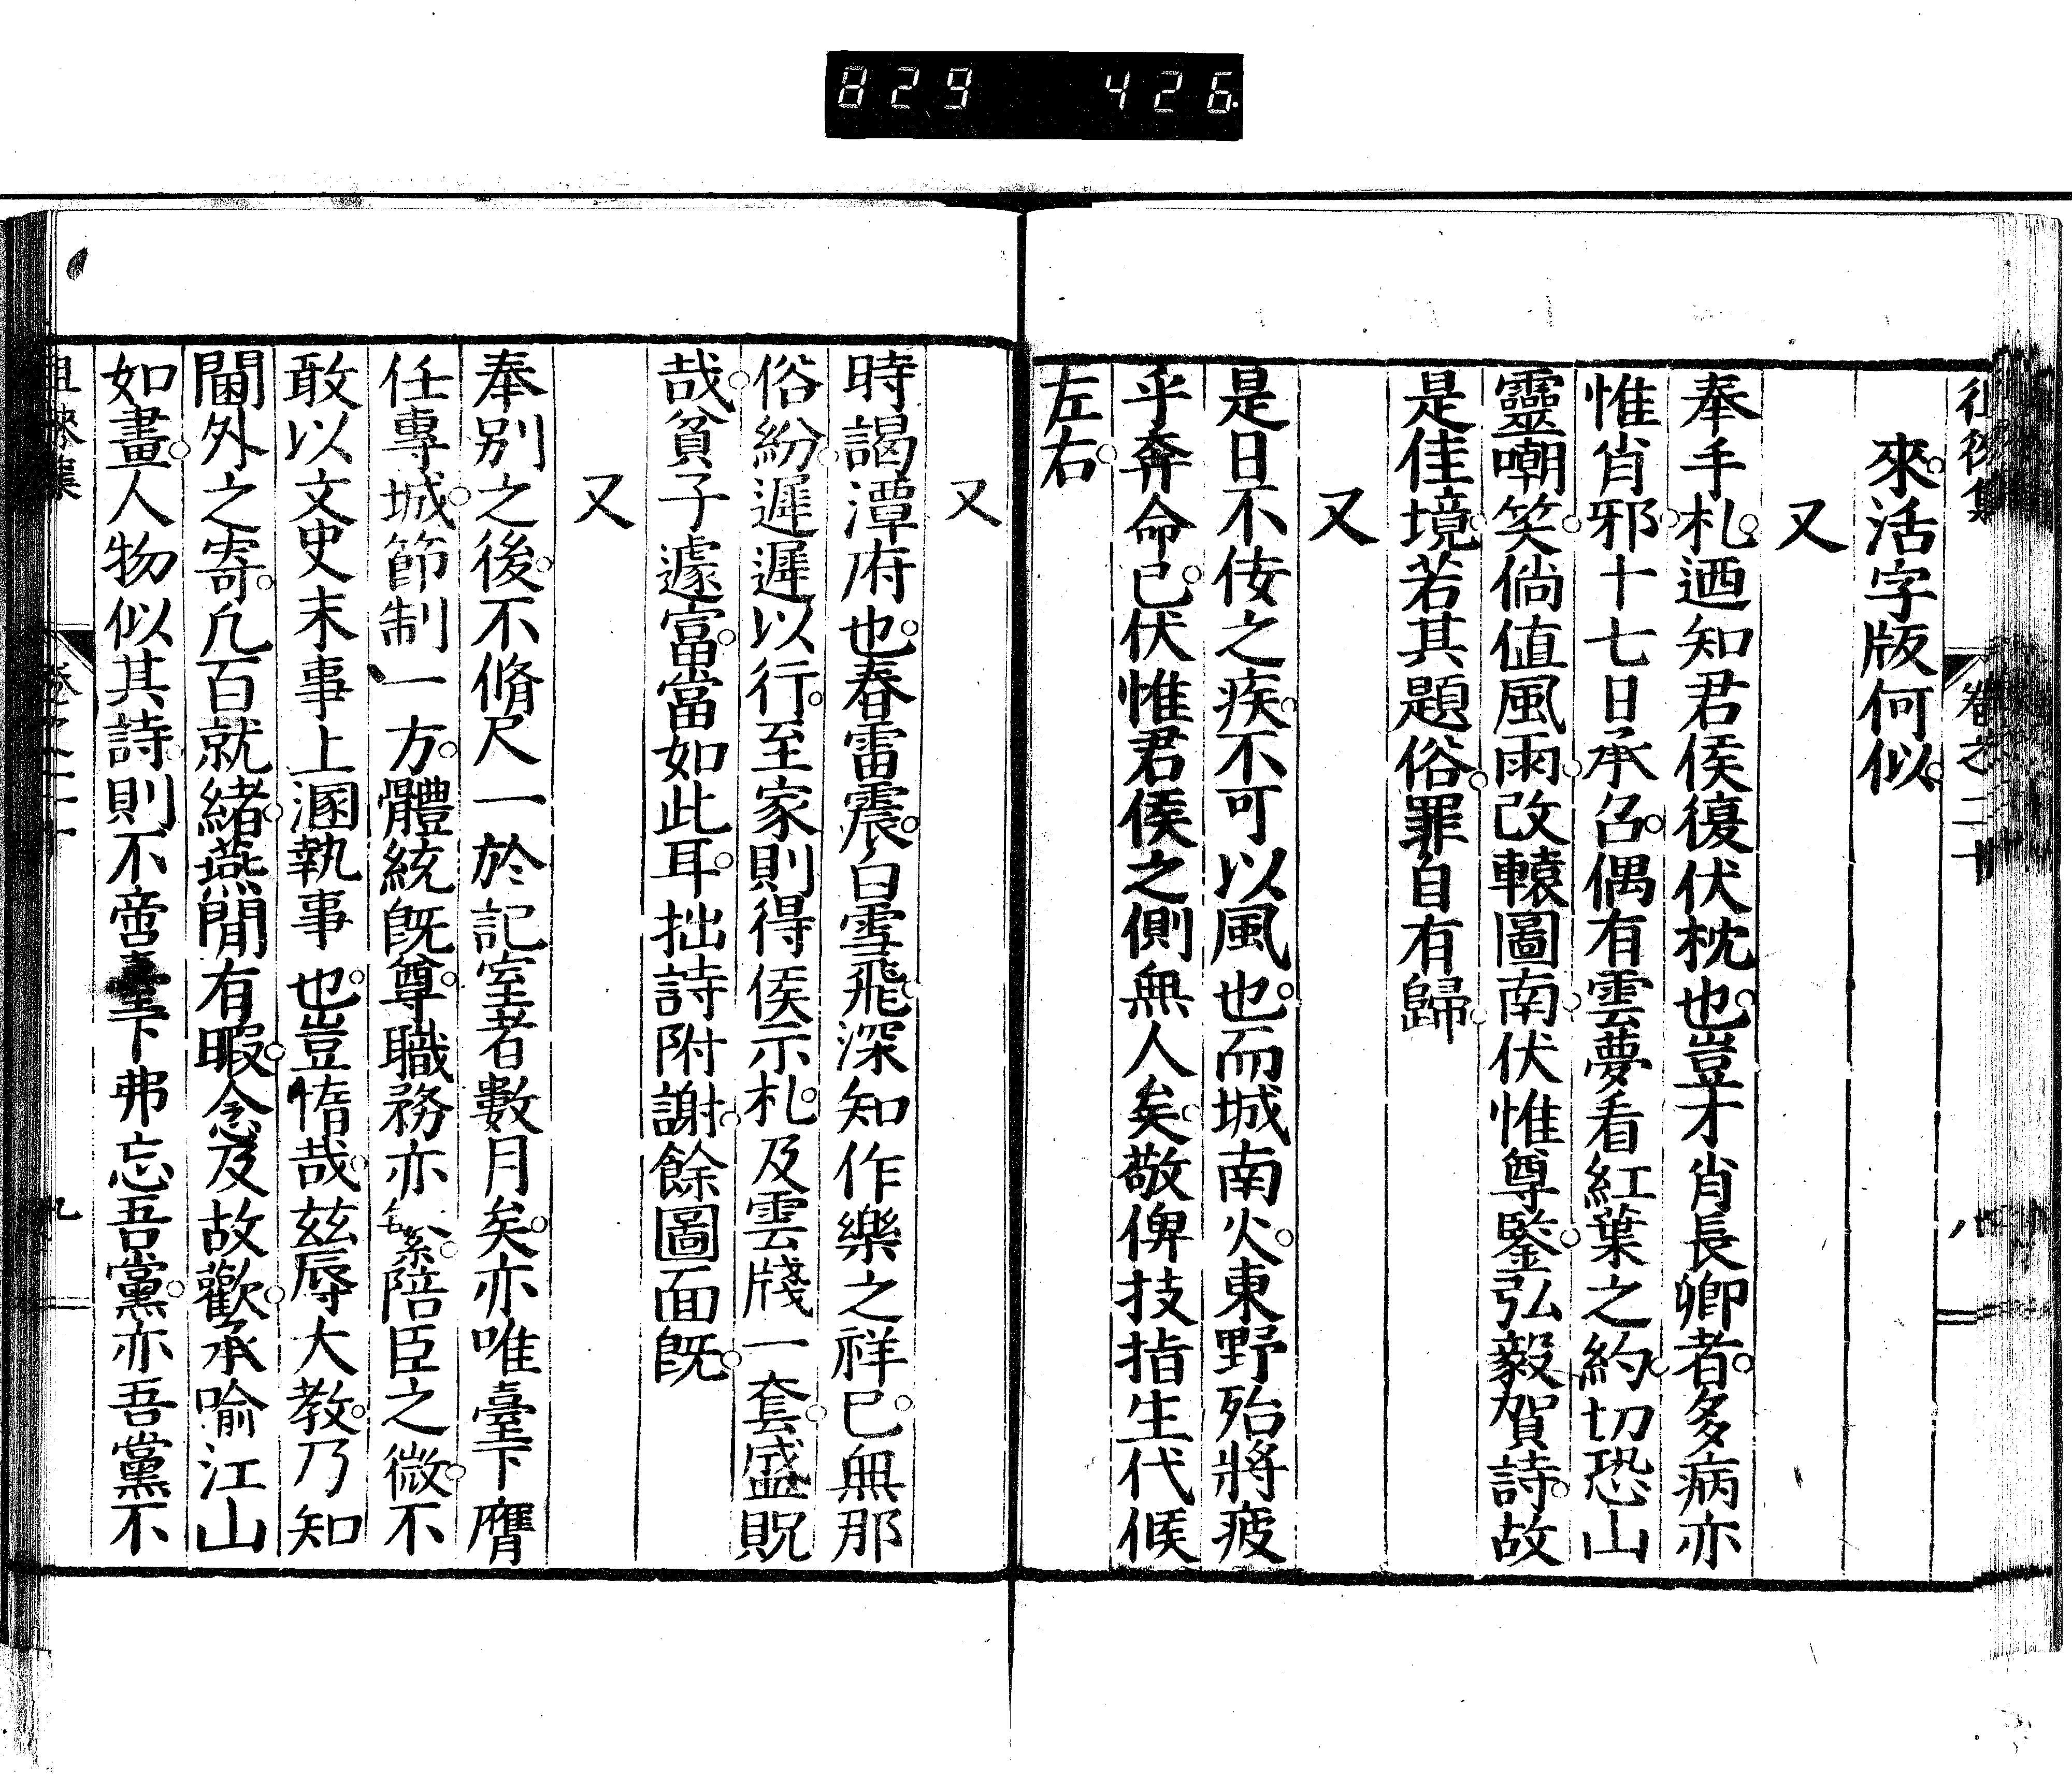 829 426
來活字版何似
又
奉手札迺知君侯復伏枕也豈才肖長卿者多病亦
惟肖邪十七日承召偶有雲夢看紅葉之約切恐山
靈嘲笑倘値風雨改轅圖南伏惟尊鑒弘毅賀詩故
是佳境若其題俗罪自有歸
又
是日不佞之疾不可以風也而城南火東野殆將疲
乎奔命已伏惟君侯之側無人矣敬俾技指生代候
左右
又
時謁潭府也春雷震白雪飛深知作樂之祥已無那
俗紛遲遲以行至家則得侯示札及雲牋一套盛貺
哉貧子遽富當如此耳拙詩附謝餘圖面旣
又
奉別之後不脩尺一於記室者數月矣亦唯臺下膺
任專城節制一方體統旣尊職務亦繁陪臣之微不
敢以文史末事上溷執事也豈惰哉茲辱大教乃知
閫外之寄凢百就緒燕閒有暇念及故歡承喩江山
如畫人物似其詩則不啻臺下弗忘吾黨亦吾黨不